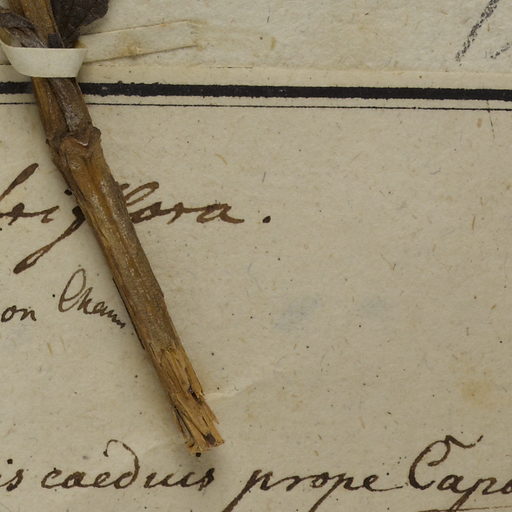 triflora.
on Cham
is caeduis prope Capo